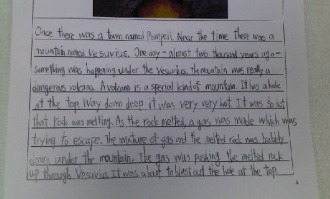 Once there was a town named Pompeii. Near the time there was a
mountain named Vesuvius. One day - almost two thousand years ago -
something was happening under the Vesuvius. The mountain was really a
dangerous volcano. A volcano is a special kind of mountain. It has a hole
at the top. Way down deep it was very very hot. It was so hot
that rock was melting. As the rock melted, a gas was made which was
trying to escape. The mixture of gas and the melted rock was
down under the mountain. The gas was pushing the melted rock
up through Vesuvius. It was about to blast out the hole at the top.